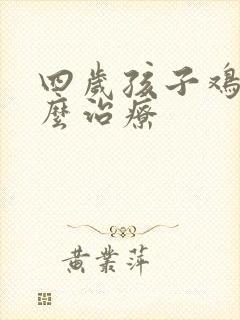 四歲孩子鸡
麼治療
黄業萍